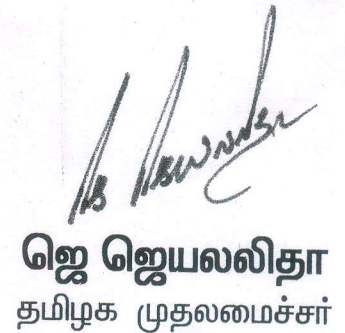 ஜெ ஜெயலலிதா
தமிழக முதலமைச்சர்